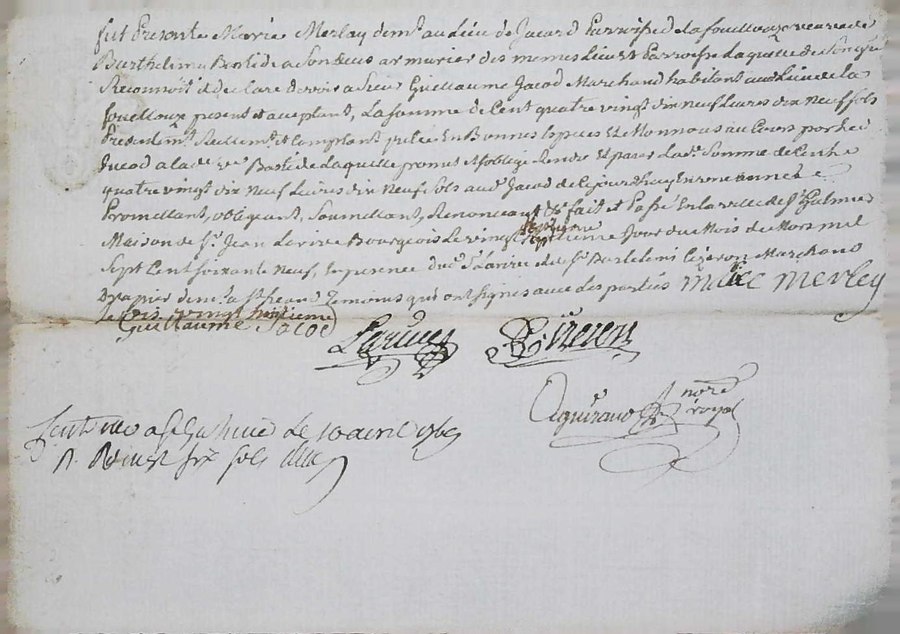 fut Presente Marie Merley demt. au Lieu de Jacard Parroisse de La fouillouze veuve de
Barthelemi Bastide a Son deus armurier des memes Lieu et Parroisse Laquelle de Son gré
Reconnoit et declare devoir a Sieur Guillaume Jacod Marchand habitant au Lieu de La
fouillouze present et acceptant, La Somme de Cent quatre vingt dix neuf Livres dix Neuf Sols
Presentemt. Reellemt. et Comptant prétée En Bonnes Especes Et Monnoie au Cours par led.
Jacod a lade. ve. Bastide Laquelle promet et s'oblige rendre Et paier Lade. Somme de Cent
quatre vingt dix Neuf Livres dix Neuf Sols aud. Jacod de Ce jourdhuy En une année
Promettant, obligeant, Soumettant, Renonceant &c fait et Passé En la ville de St. Galmier
Maison de Sr. Jean Larive Bourgeois Le vingt jour du Mois de Mars mil
Sept Cent Soixante Neuf, En presence dud. Sr. Larive et de Sr. Bartelemi Cizeron Marchand
Drapier demt. a St. Temoins qui ont Signés avec des parties marie merley
Le Cois vingt huitieme
Guillaume Jacod
Larive Cizeron
Aguirand nore. royal
a St. Galmier le 10 avril 1769
R. Sols